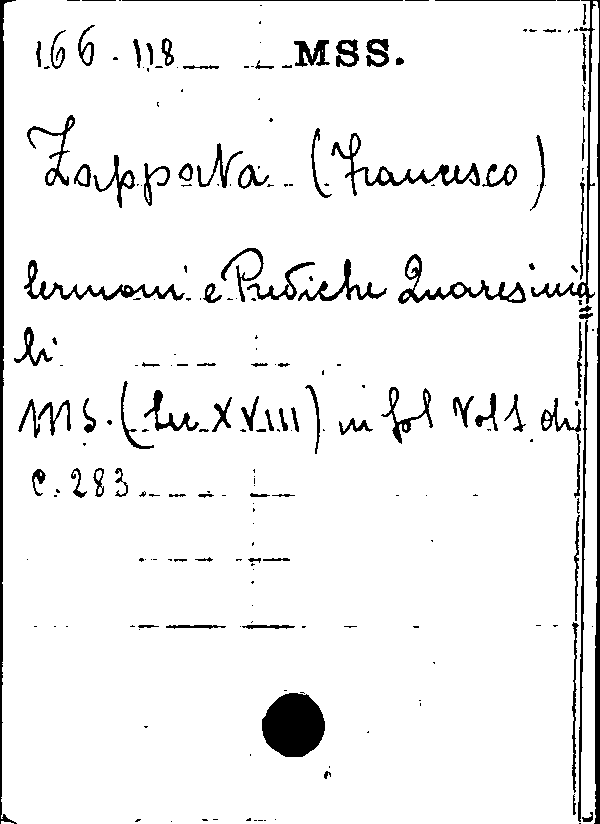 166.118 MSS.
Zapparta (Francesco)
Sermoni e Prediche Quaresimia=
li
MS. (Sec XVIII) in fol Vol 1 di
c. 283